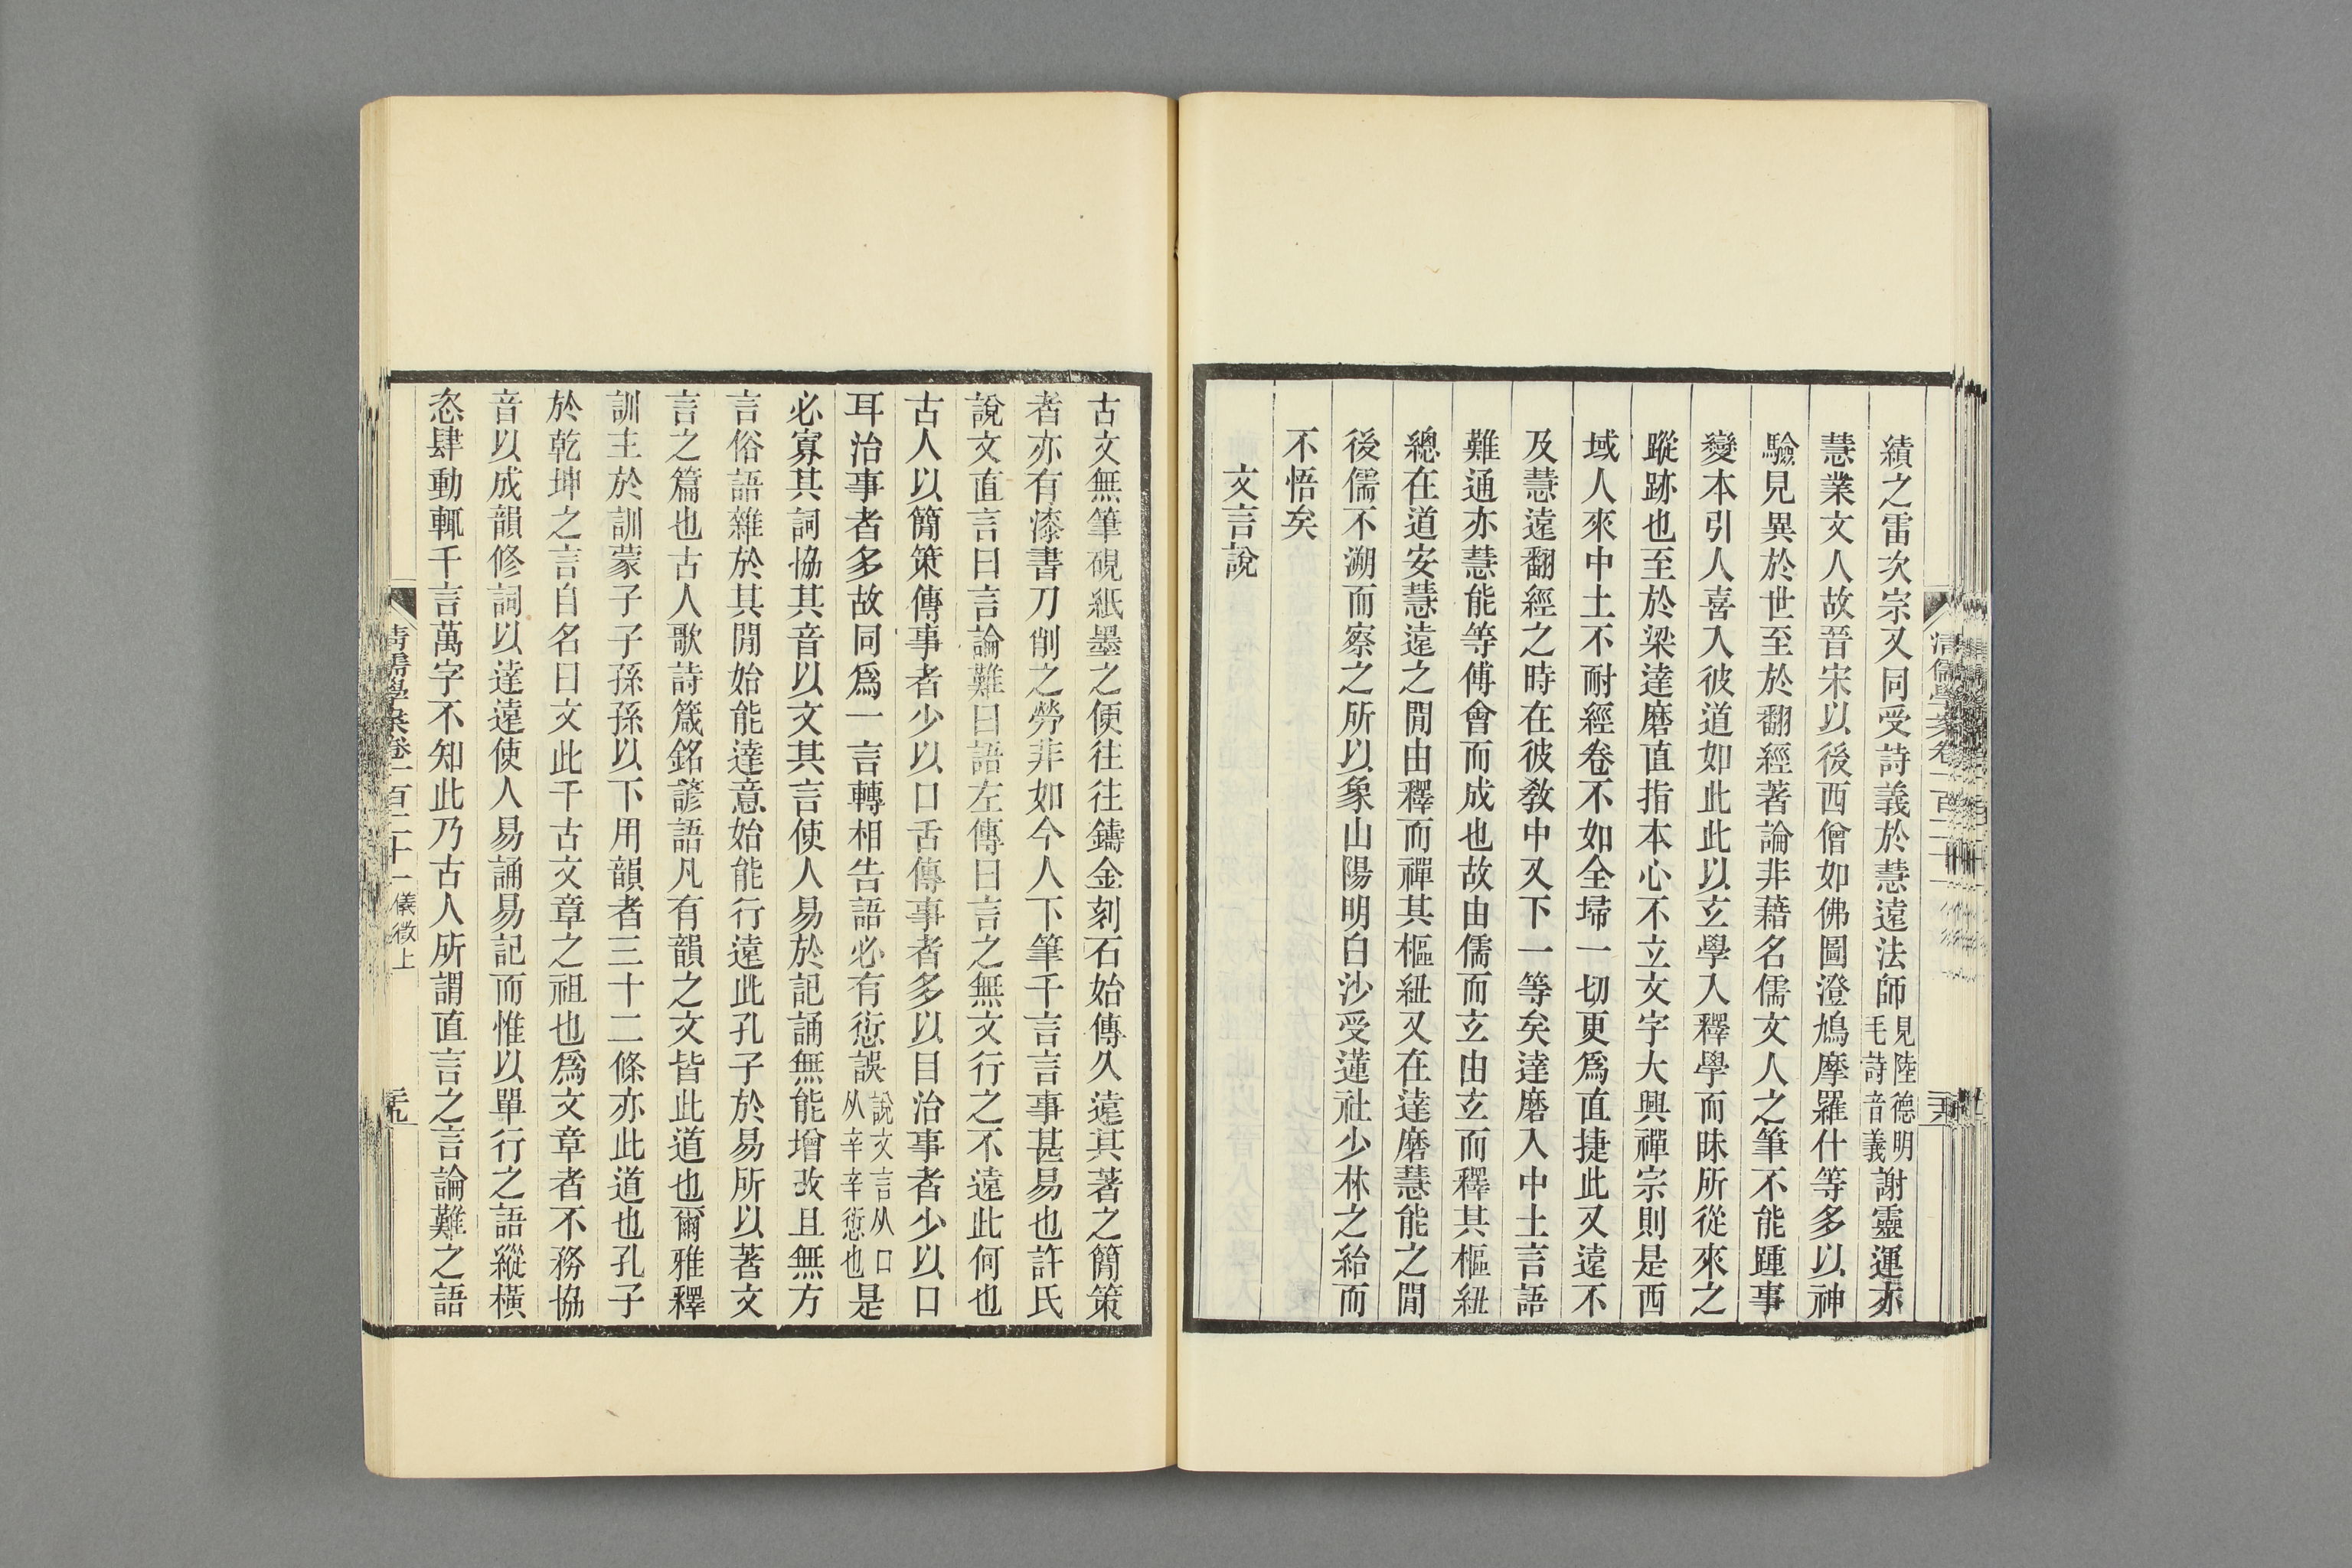 績之雷次宗又同受詩義於慧遠法師見陸德明毛詩音義謝靈運亦
慧業文人故晉宋以後西僧如佛圖澄鳩摩羅什等多以神
驗見異於世至於翻經著論非藉名儒文人之筆不能踵事
變本引人喜入彼道如此此以玄學入釋學而昧所從來之
蹤跡也至於梁達磨直指本心不立文字大興禪宗則是西
域人來中土不耐經卷不如全埽一切更爲直捷此又遠不
及慧遠翻經之時在彼敎中又下一等矣達磨入中土言語
難通亦慧能等傅會而成也故由儒而玄由玄而釋其樞紐
總在道安慧遠之閒由釋而禪其樞紐又在達磨慧能之閒
後儒不溯而察之所以象山陽明白沙受蓮社少林之紿而
不悟矣
文言說
古文無筆硯紙墨之便往往鑄金刻石始傳久遠其著之簡策
者亦有漆書刀削之勞非如今人下筆千言言事甚易也許氏
說文直言曰言論難曰語左傳曰言之無文行之不遠此何也
古人以簡策傳事者少以口舌傳事者多以目治事者少以口
耳治事者多故同爲一言轉相告語必有愆誤說文言从口从䇂䇂愆也是
必寡其詞協其音以文其言使人易於記誦無能增改且無方
言俗語雜於其閒始能達意始能行遠此孔子於易所以著文
言之篇也古人歌詩箴銘諺語凡有韻之文皆此道也爾雅釋
訓主於訓蒙子子孫孫以下用韻者三十二條亦此道也孔子
於乾坤之言自名曰文此千古文章之祖也爲文章者不務協
音以成韻修詞以達遠使人易誦易記而惟以單行之語縱橫
恣肆動輒千言萬字不知此乃古人所謂直言之言論難之語
清儒學案卷一百二十一 儀徵上